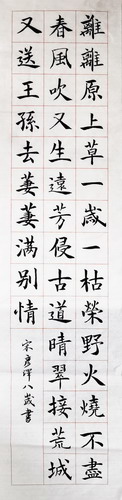 離離原上草一歲一枯榮野火燒不盡
春風吹又生遠芳侵古道晴翠接荒城
又送王孫去萋萋满别情
八歲書